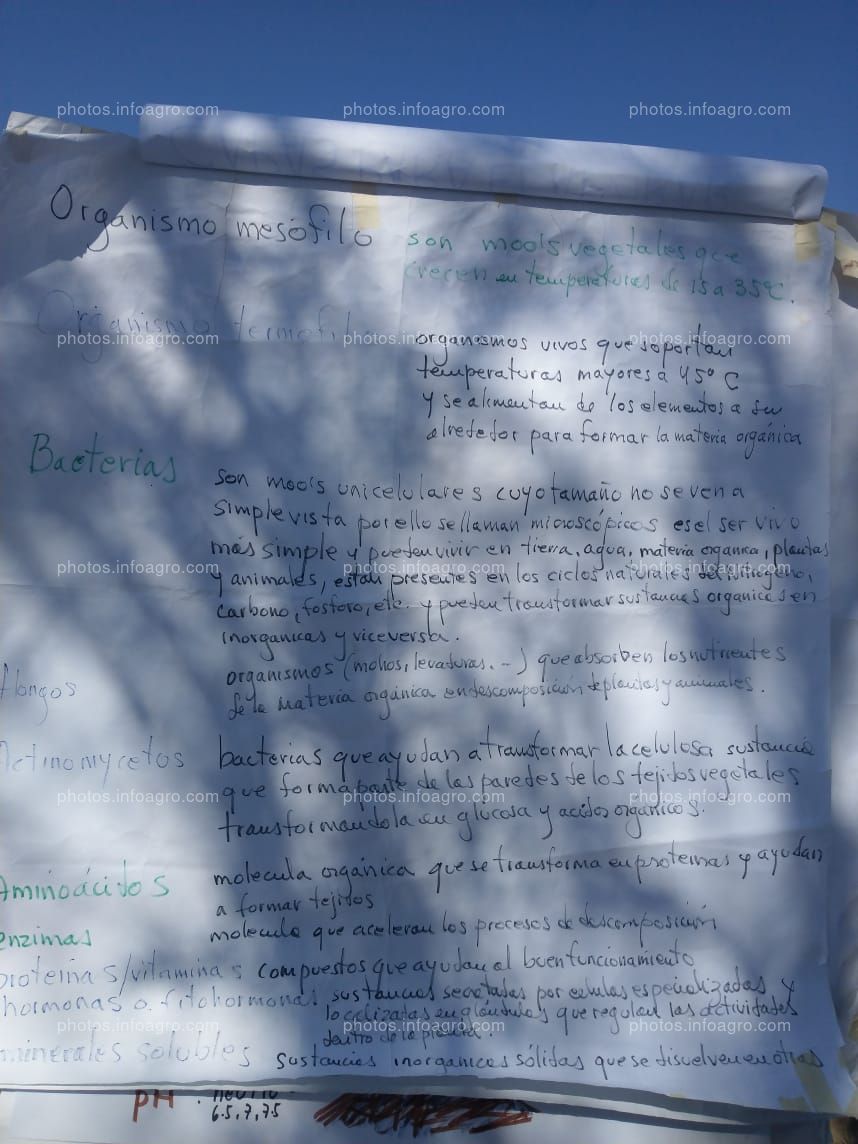 photos.infoagro.com photos.infoagro.com photos.infoagro.com
Organismo mesófilo son moo's vegetales que
crecen en temperaturas de 15 a 35°C.
Organismo termofilo
photos.infoagro.com photos.infoagro.com photos.infoagro.com
organismos vivos que soportan
temperaturas mayores a 45° C
y se alimentan de los elementos a su
alrededor para formar la materia orgánica
Bacterias
son moo's unicelulares cuyo tamaño no se ven a
simple vista por ello se llaman microscópicos es el ser vivo
más simple y pueden vivir en tierra, agua, materia organica, plantas
photos.infoagro.com photos.infoagro.com photos.infoagro.com
y animales, están presentes en los ciclos naturales del nitrogeno,
carbono, fosforo, etc. y pueden transformar sustancias organicas en
inorganicas y viceversa.
Hongos
organismos (mohos, levaduras. --) que absorben los nutrientes
de la materia orgánica en descomposición de plantas y animales.
Actinomycetos bacterias que ayudan a transformar la celulosa sustancia
que forma parte de las paredes de los tejidos vegetales
photos.infoagro.com photos.infoagro.com photos.infoagro.com
transformandola en glucosa y acidos orgánicos.
Aminoácidos molecula orgánica que se transforma en proteinas y ayudan
a formar tejidos
enzimas molecula que aceleran los procesos de descomposición
proteinas/vitaminas compuestos que ayudan al buen funcionamiento
hormonas o fitohormonas sustancias secretadas por celulas especializadas y
localizadas en glándulas que regulan las actividades
dentro de la planta.
photos.infoagro.com photos.infoagro.com photos.infoagro.com
minerales solubles sustancias inorganicas sólidas que se disuelven en otras
PH . neutro
6.5, 7, 7.5